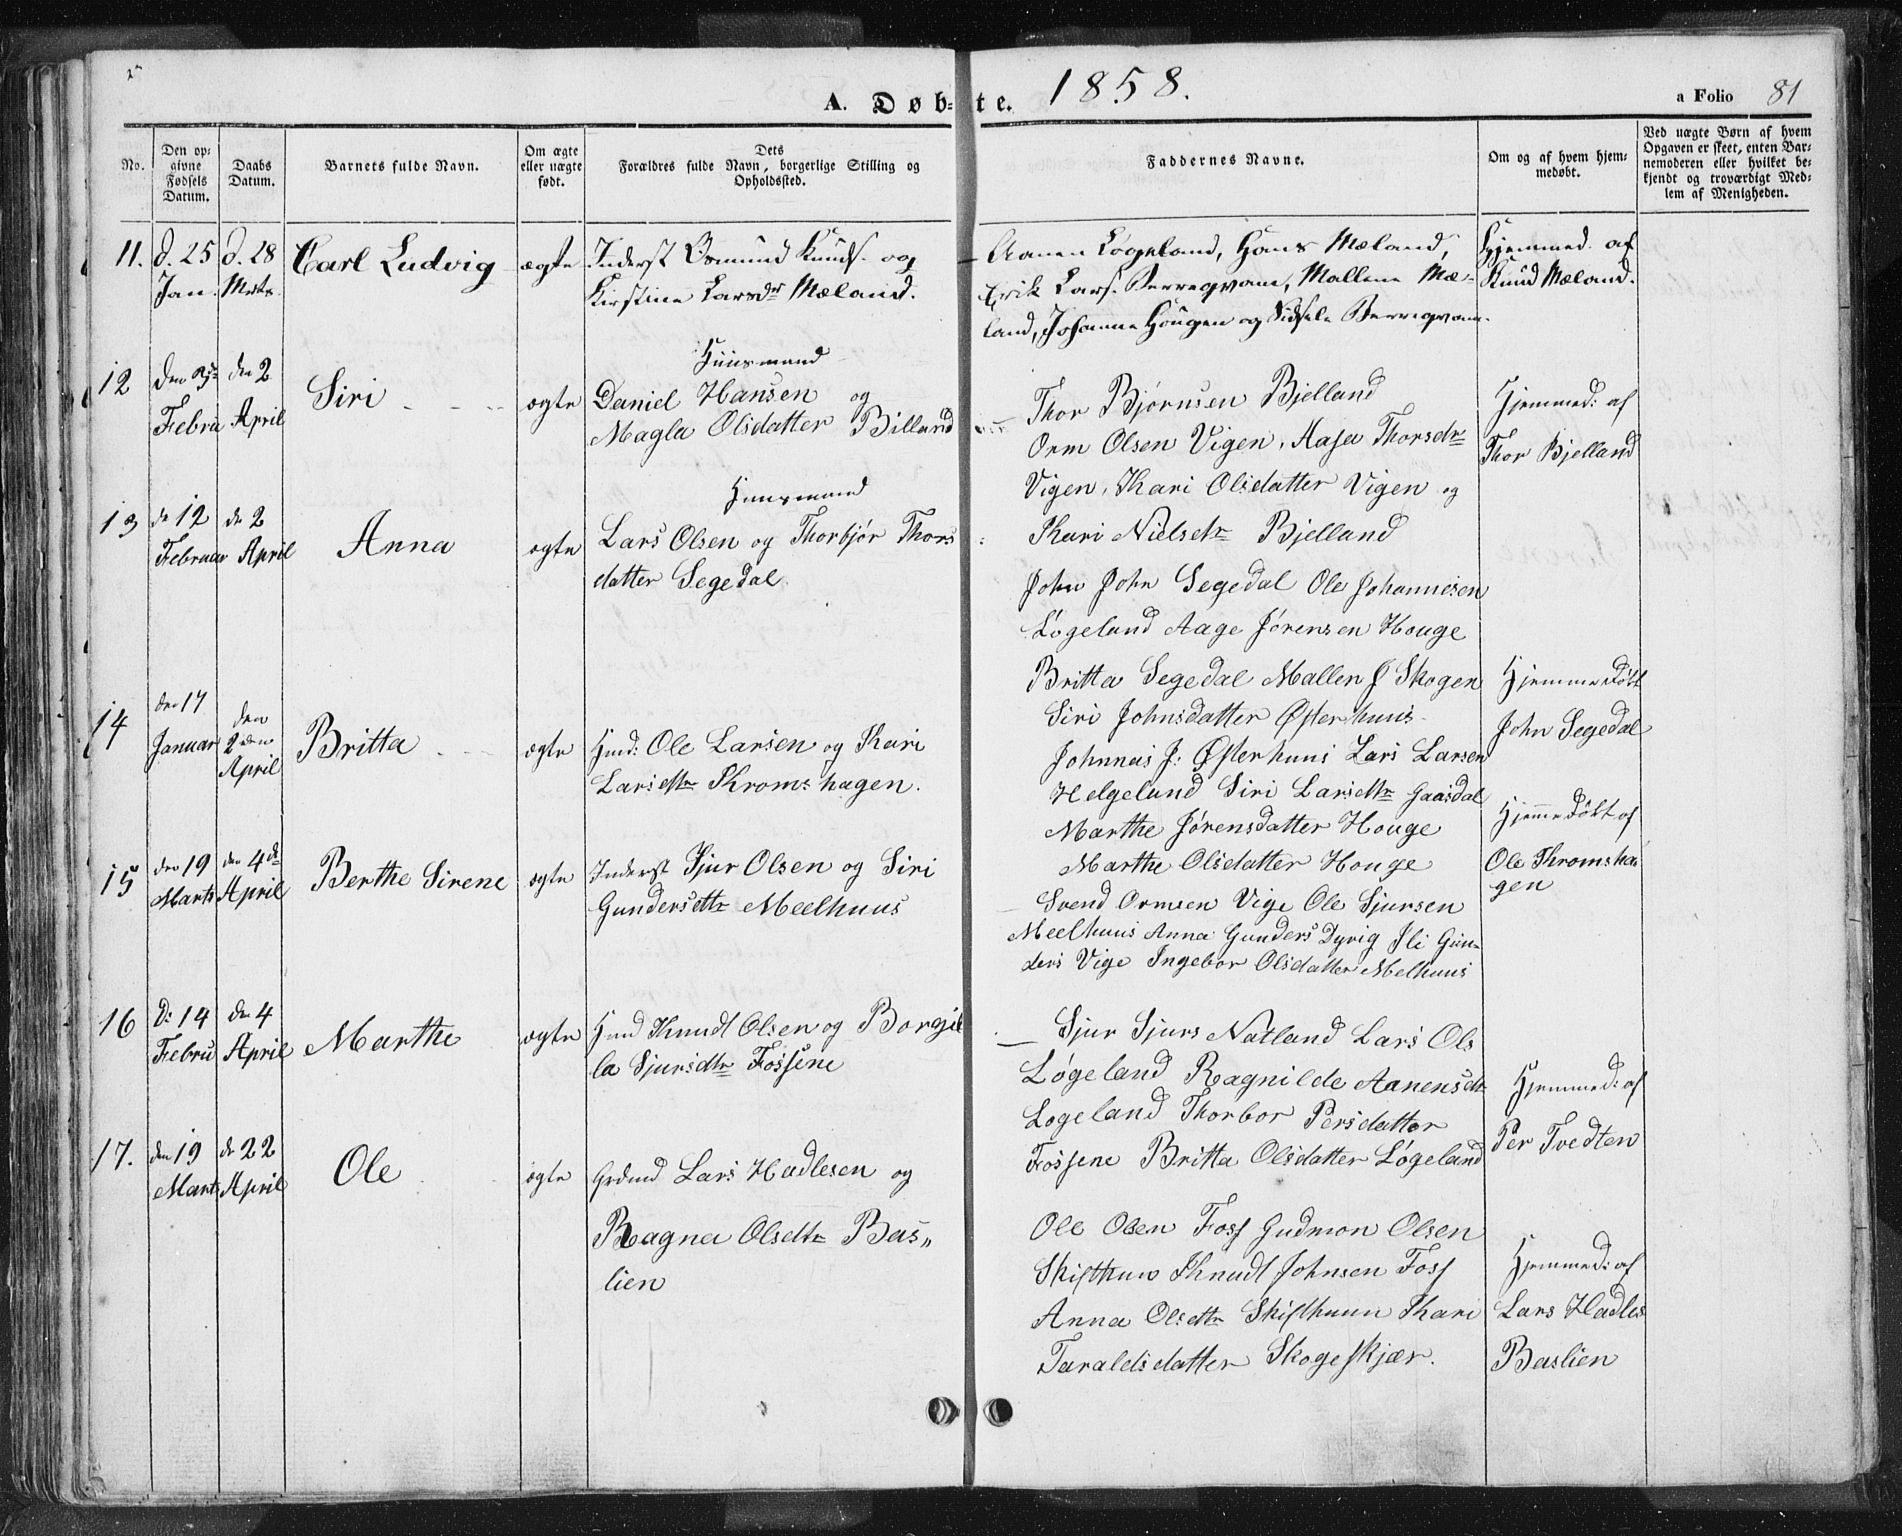 A. Døbte. 1858.
a Folio 81
No.
Den opgivne Fødsels Datum.
Daabs Datum.
Barnets fulde Navn.
Om ægte eller uægte født.
Dets Forældres fulde Navn, borgerlige Stilling og Opholdssted.
Faddernes Navne.
Om og af hvem hjemmedøbt.
Ved uægte Børn af hvem Opgaven er skeet, enten Barnemoderen eller hvilket bekjendt og troværdigt Medlem af Menigheden.
11. d. 25 Jan. d. 28 Marts Carl Ludvig ægte
Inderst Osmund Knuds. og
Kirstine Larsdr Mæland.
Aanen Løgeland, Hans Mæland,
Erik Lars. Berreqvam, Mallene Mæ-
land, Johanne Hougen og Sidsele Berreqvam.
Hjemmed. af
Knud Mæland.
12 den Febru den 2 April Siri ægte
Huusmand
Daniel Hansen og
Magla Olsdatter Billand
Thor Bjørnsen Bjelland
Orm Olsen Vigen, Aasa Thorsdr
Vigen, Kari Olsdatter Vigen og
Kari Nielsdtr Bjelland
Hjemmed: af
Thor Bjelland
13 de 12 Februar de 2 April Anna ægte
Huusmand
Lars Olsen og Thorbjør Thors
datter Segedal
John John Segedal Ole Johannesen
Løgeland Aage Jørensen Houge
Britta Segedal Mallen J Skogen
Siri Johnsdatter Østerhuus
Hjemmedøbt
John Segedal
14 den 17 Januar den 2den April Britta ægte
Hmd: Ole Larsen og Kari
Larsdtr Kromshagen.
Johnnas J: Østerhuus Lars Larsen
Helgeland Siri Larsdtr Gaasdal
Marthe Jørensdatter Houge
Marthe Olsdatter Houge
Hjemmedøbt af
Ole Kromsha
gen
15 den 19 Marts den 4de April Berthe Sirene ægte
Inderst Sjur Olsen og Siri
Gundersdtr Meelhuus
Svend Ormsen Vige Ole Sjursen
Meelhuus Anna Gunders Dyvig Ili Gun-
ders Vige Ingebor Olsdatter Melhuus
16 D: 14 Febru den 4 April Marthe ægte
Hmd Knudt Olsen og Borgil
la Sjursdtr Fossene
Sjur Sjurs Natland Lars Ols
Løgeland Ragnilde Aanensdt
Logeland Thorbor Persdatter
Fossene Britta Olsdatter Løgeland
Hjemmed: af
Per Tvedten
17. den 19 Marts de 22 April Ole ægte
Grdmd Lars Hadlesen og
Ragna Olsdtr Bas„
lien
Ole Olsen Foss Gudmon Olsen
Skifthun Knudt Johnsen Foss
Anna Olsdtr Skifthuun Kari
Taraldsdatter Skogeskjær.
Hjemmed: af
Lars Hadles
Baslien